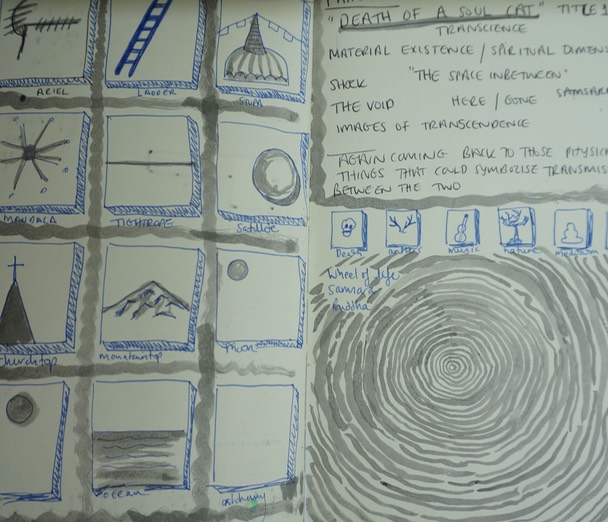 ARIEL
LADDER
STUPA
MANDALA
TIGHTROPE
Satilite
Churchtop
mountaintop
moon
ocean
alchemy
"DEATH OF A SOUL CAT" TITLE
TRANSCIENCE
MATERIAL EXISTENCE / SPIRITUAL DIMENS
SHOCK "THE SPACE INBETWEEN"
THE VOID HERE / GONE SAMSARA
IMAGES OF TRANSCENDENCE
AGAIN COMING BACK TO THOSE PHYSICA
THINGS THAT COULD SYMBOLISE TRANSMISS
BETWEEN THE TWO
Death
antlers
music
nature
Wheel of life
Samsara
Buddha